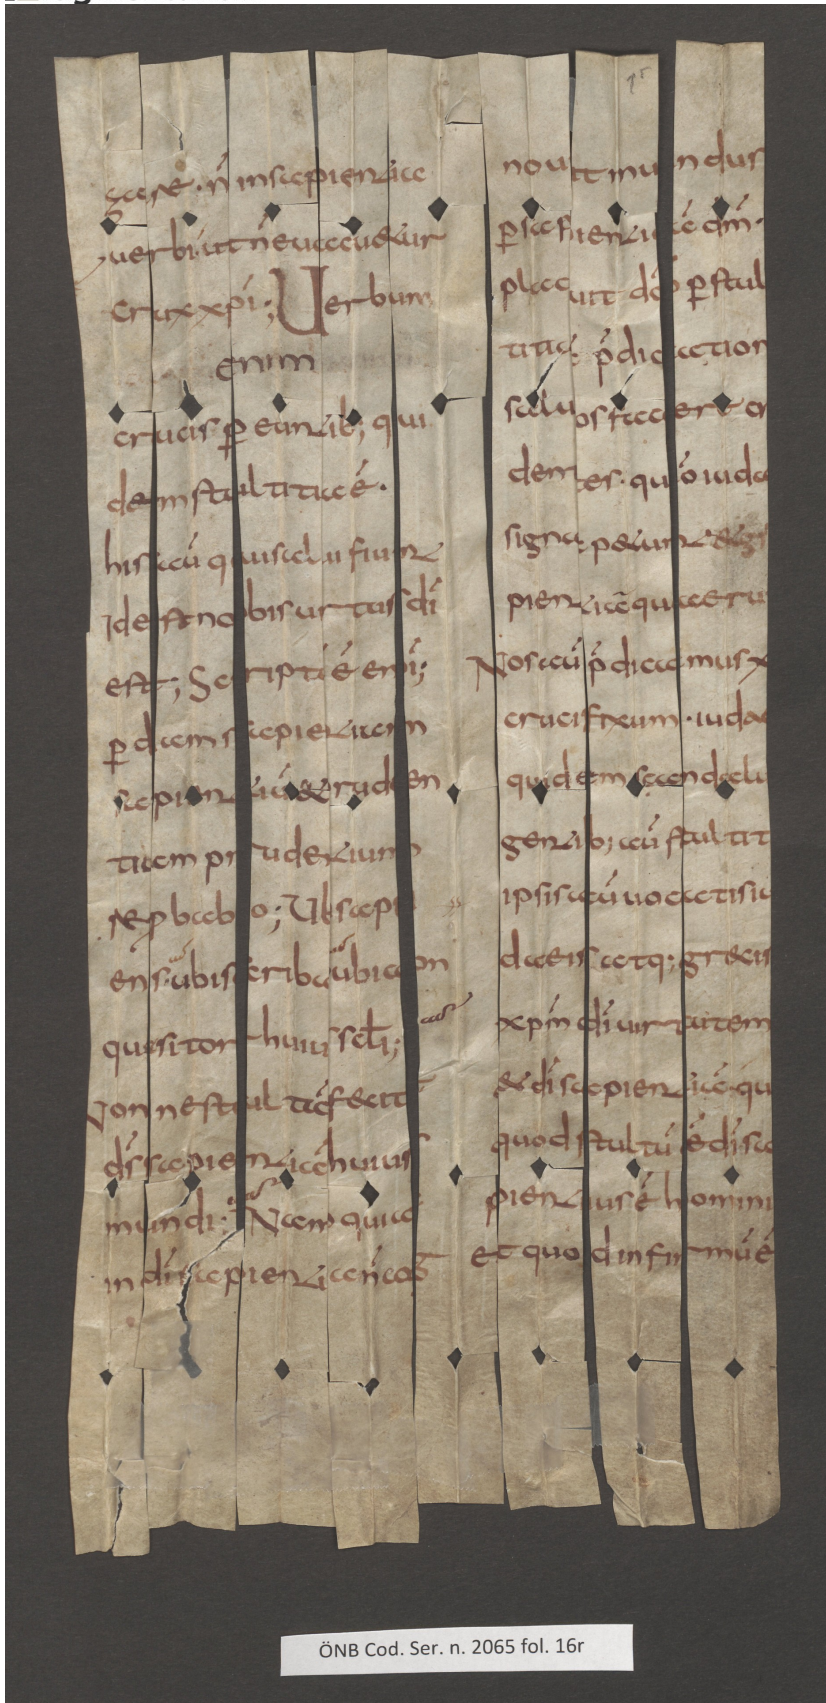 gare · n̄ insapientia
uerbi ut n̄ euacuetur
crux xp̄i; Uerbum
enim
crucis ꝑeuntib; qui
dem stultitia ē ·
his aū qui salui fiunt
Id est nobis uirtus dī
est; Scriptū ē enī;
ꝑdam sapientiam
sapientiū & pruden
tiam prudentium
reꝓbabo; Ubi sapi
ens · ubi scriba ubi con
quisitor huius scl̄i;
Nonne stultā fecit
ds̄ sapientiā huius
mundi; Nam quia
in dī sapientia n̄ cog
nouit mundus
ꝑ sapientiā dm̄ ·
placuit dō ꝑ stul
titiā p̄dication
saluos facere cr
dentes · quō iudæ
signa petunt & gr
pientiā querun
Nos aū p̄dicamus x
crucifixum · iudae
quidem scandalu
gentib; aū stultit
ipsis aū uocatis iu
daeis atq; grecis
xp̄m dī uirtutem
& dī sapientiā · qu
quod stultū ē dī sa
pientius ē homini
et quod infirmū ē
ÖNB Cod. Ser. n. 2065 fol. 16r